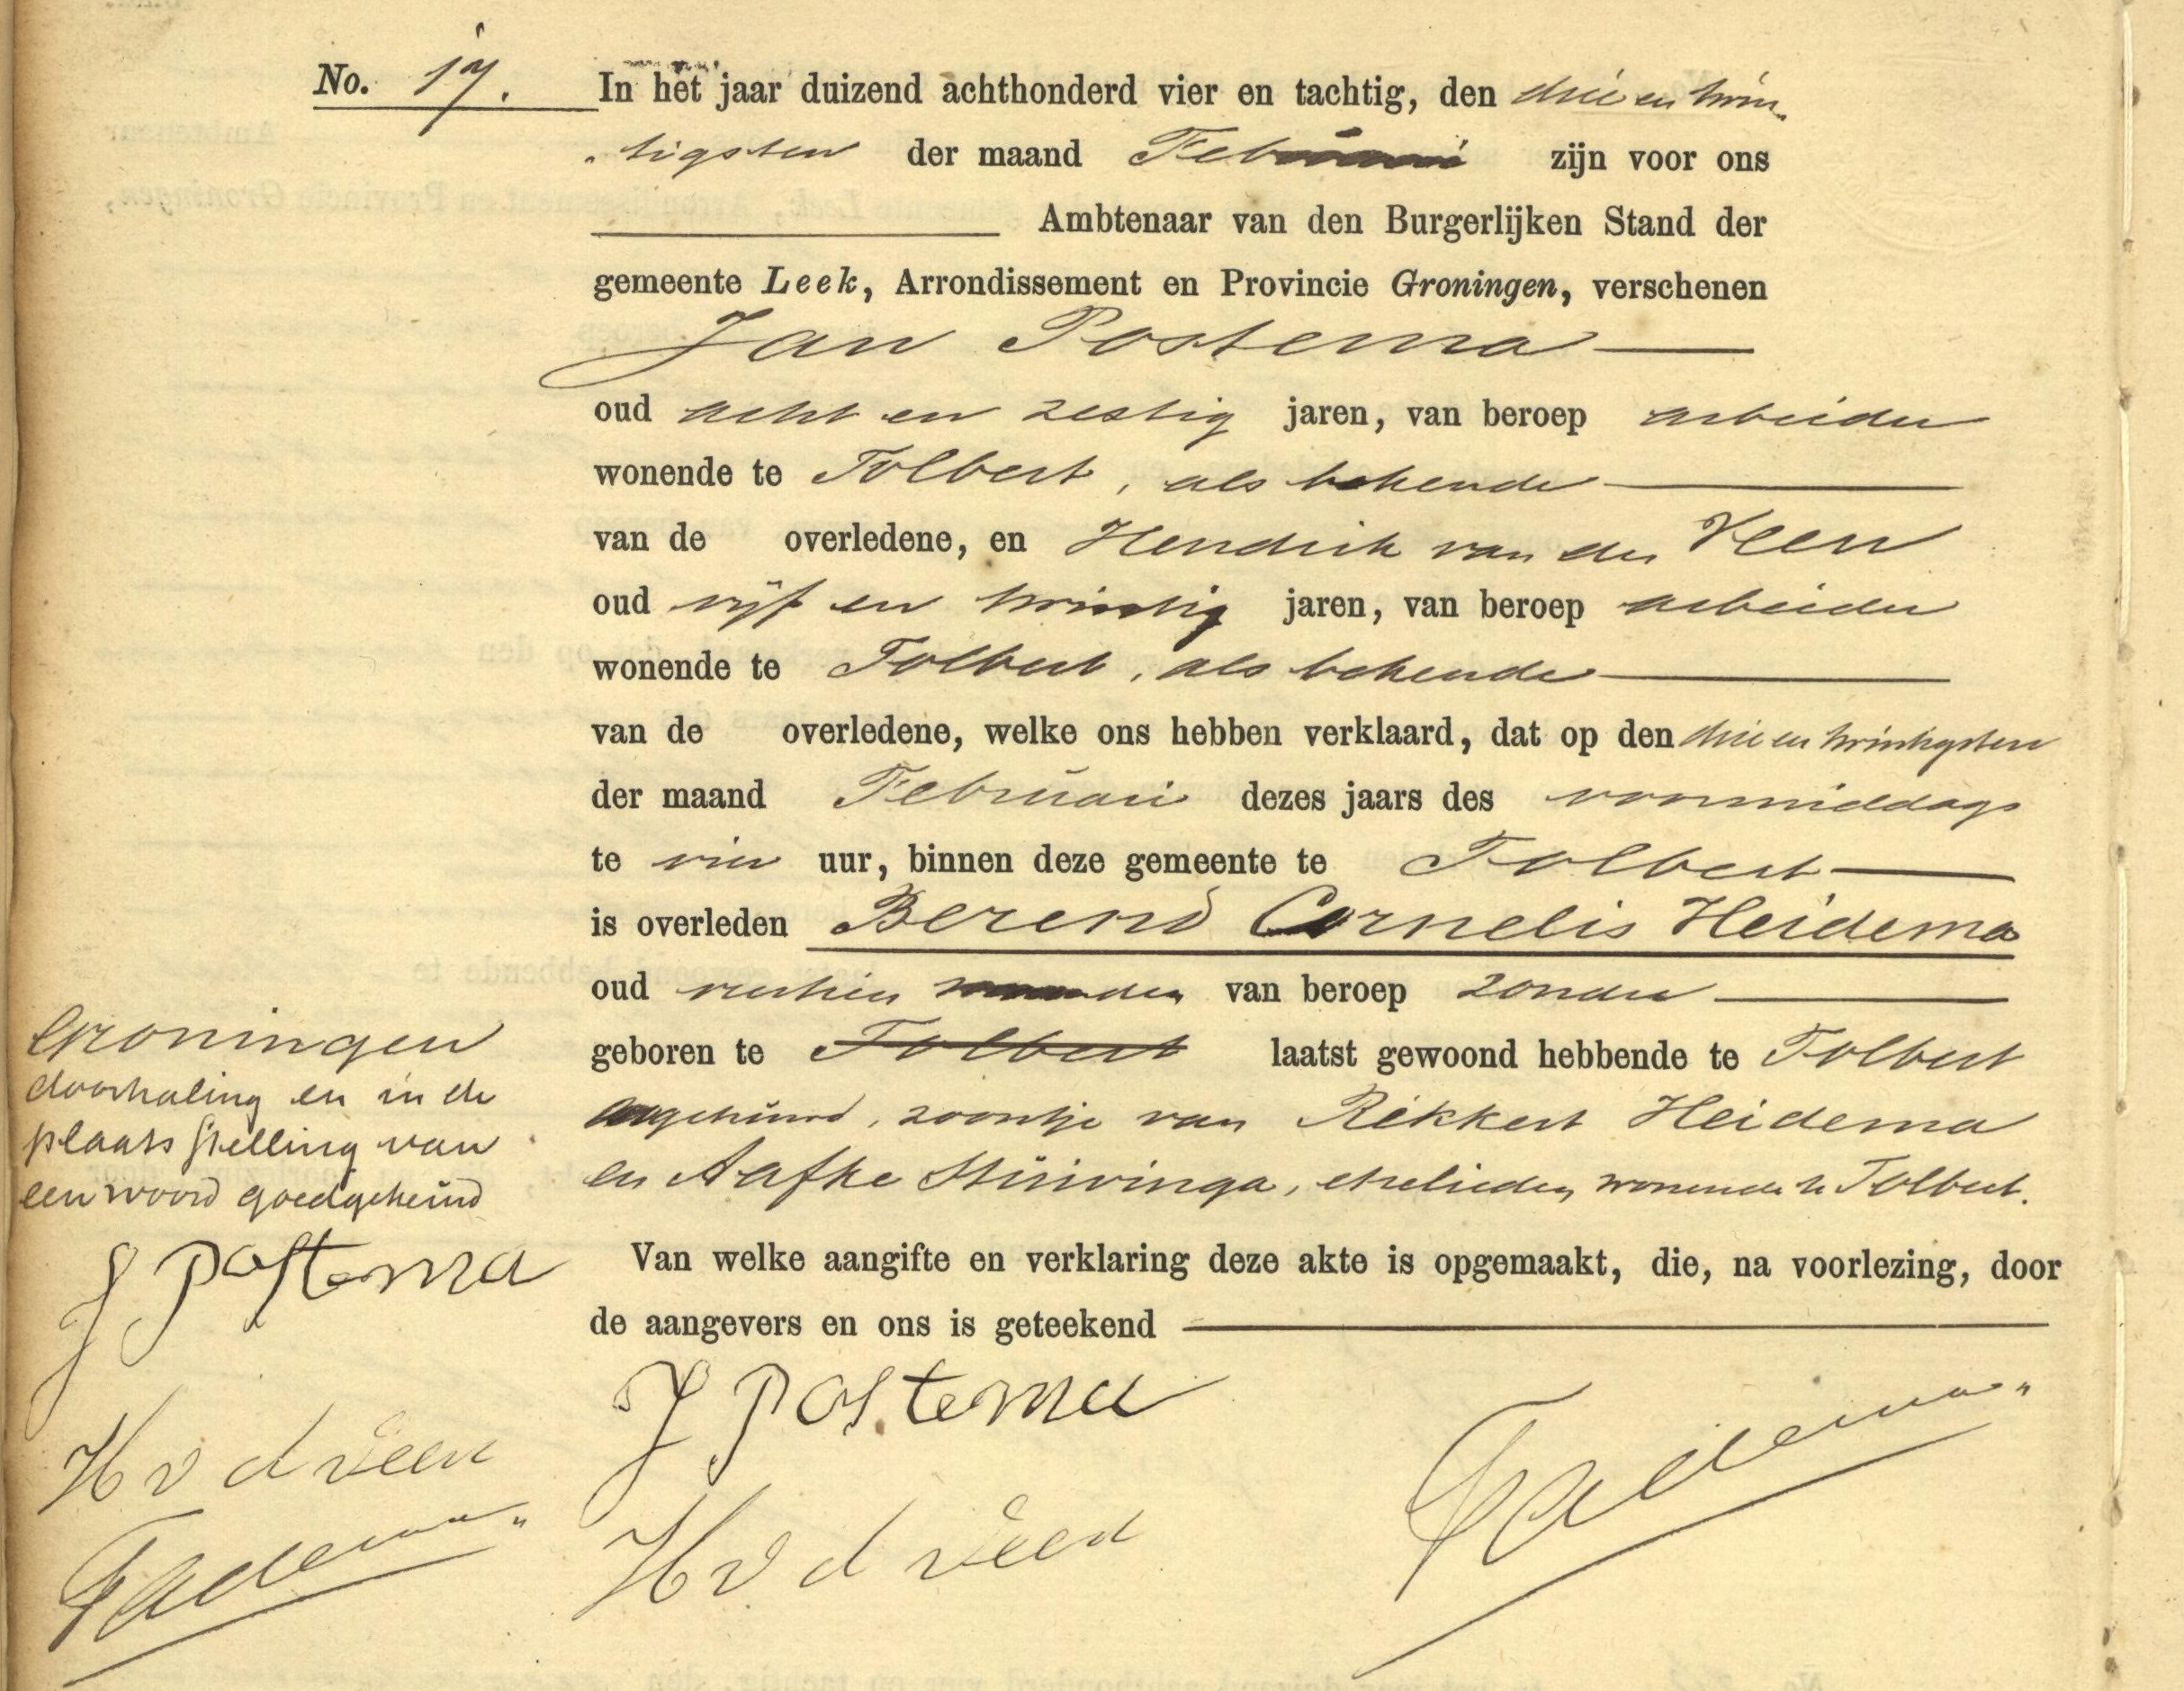 No. 17. In het jaar duizend achthonderd vier en tachtig, den drie en twin„
„tigsten der maand Februari zijn voor ons
Ambtenaar van den Burgerlijken Stand der
gemeente Leek, Arrondissement en Provincie Groningen, verschenen
Jan Postema
oud acht en zestig jaren, van beroep arbeider
wonende te Tolbert, als bekende
van de overledene, en Hendrik van der Veen
oud vijf en twintig jaren, van beroep arbeider
wonende te Tolbert, als bekende
van de overledene, welke ons hebben verklaard, dat op den drie en twintigsten
der maand Februari dezes jaars des voormiddags
te vier uur, binnen deze gemeente te Tolbert
is overleden Berend Cornelis Heidema
oud maanden van beroep zonder
geboren te Tolbert laatst gewoond hebbende te Tolbert
ongehuwd, zoontje van Rikkert Heidema
en Aafke Stuivinga, echelieden wonende te Tolbert.
Van welke aangifte en verklaring deze akte is opgemaakt, die, na voorlezing, door
de aangevers en ons is geteekend
J Postema
H v d veen
Groningen
doorhaling en in de
plaats stelling van
een woord goedgekeurd
J Postema
H v d veen